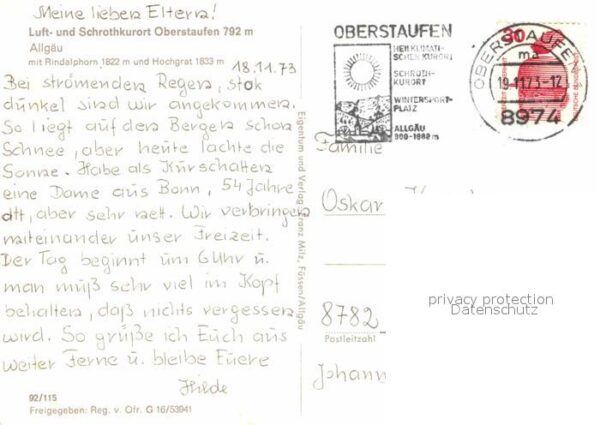 Meine lieben Eltern!
Luft- und Schrothkurort Oberstaufen 792 m
Allgäu
mit Rindalphorn 1822 m und Hochgrat 1833 m
18.11.73
Bei strömenden Regen, stok
dunkel sind wir angekommen.
So liegt auf den Bergen schon
Schnee, aber heute lachte die
Sonne. Habe als Kurschatten
eine Dame aus Bonn, 54 Jahre
alt, aber sehr nett. Wir verbringen
miteinander unser Freizeit.
Der Tag beginnt um 6 Uhr u.
man muß sehr viel im Kopf
behalten, daß nichts vergessen
wird. So grüße ich Euch aus
weiter Ferne u. bleibe Euere
Hilde
92/115
Freigegeben: Reg. v. Ofr. G 16/53941
Eigentum und Verlag Franz Milz, Füssen/Allgäu
OBERSTAUFEN
HEILKLIMATI-
SCHER KURORT
SCHROTH-
KURORT
WINTERSPORT-
PLATZ
ALLGÄU
800-1882 m
OBERSTAUFEN
ma
19.11.73-17
8974
30
Familie
Oskar
8782
Postleitzahl
Johann
privacy protection
Datenschutz